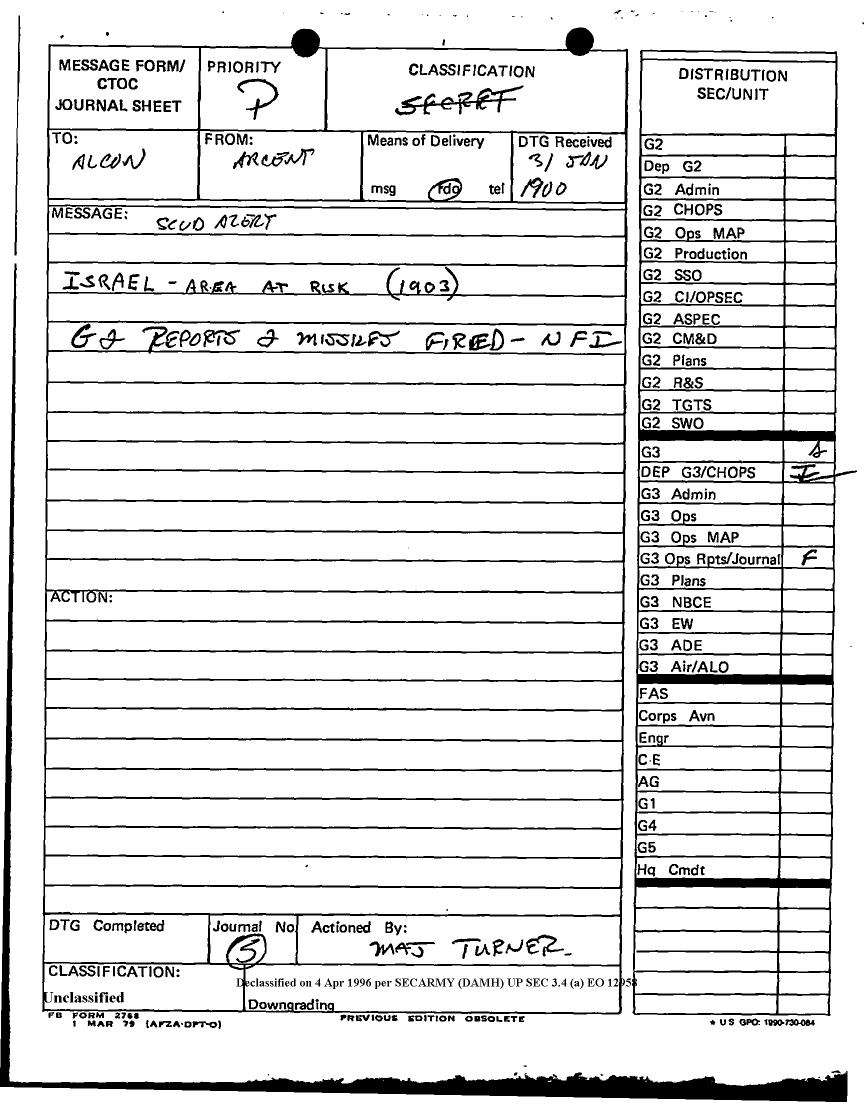 MESSAGE FORM/
CTOC
JOURNAL SHEET
PRIORITY
P
CLASSIFICATION
SECRET
TO:
ALCON
FROM:
ARCENT
Means of Delivery
msg rdo tel
DTG Received
31 JAN
1900
MESSAGE:
SCUD ALERT
ISRAEL - AREA AT RISK (1903)
G2 REPORTS 2 MISSILES FIRED - NFI
ACTION:
DTG Completed
Journal No
5
Actioned By:
MAJ TURNER
CLASSIFICATION:
Unclassified
Declassified on 4 Apr 1996 per SECARMY (DAMH) UP SEC 3.4 (a) EO 12958
Downgrading
FB FORM 2768
1 MAR 79 (AFZA-DPT-O)
PREVIOUS EDITION OBSOLETE
DISTRIBUTION
SEC/UNIT
G2
Dep G2
G2 Admin
G2 CHOPS
G2 Ops MAP
G2 Production
G2 SSO
G2 CI/OPSEC
G2 ASPEC
G2 CM&D
G2 Plans
G2 R&S
G2 TGTS
G2 SWO
G3
DEP G3/CHOPS I
G3 Admin
G3 Ops
G3 Ops MAP
G3 Ops Rpts/Journal F
G3 Plans
G3 NBCE
G3 EW
G3 ADE
G3 Air/ALO
FAS
Corps Avn
Engr
C-E
AG
G1
G4
G5
Hq Cmdt
* U S GPO: 1990-730-084